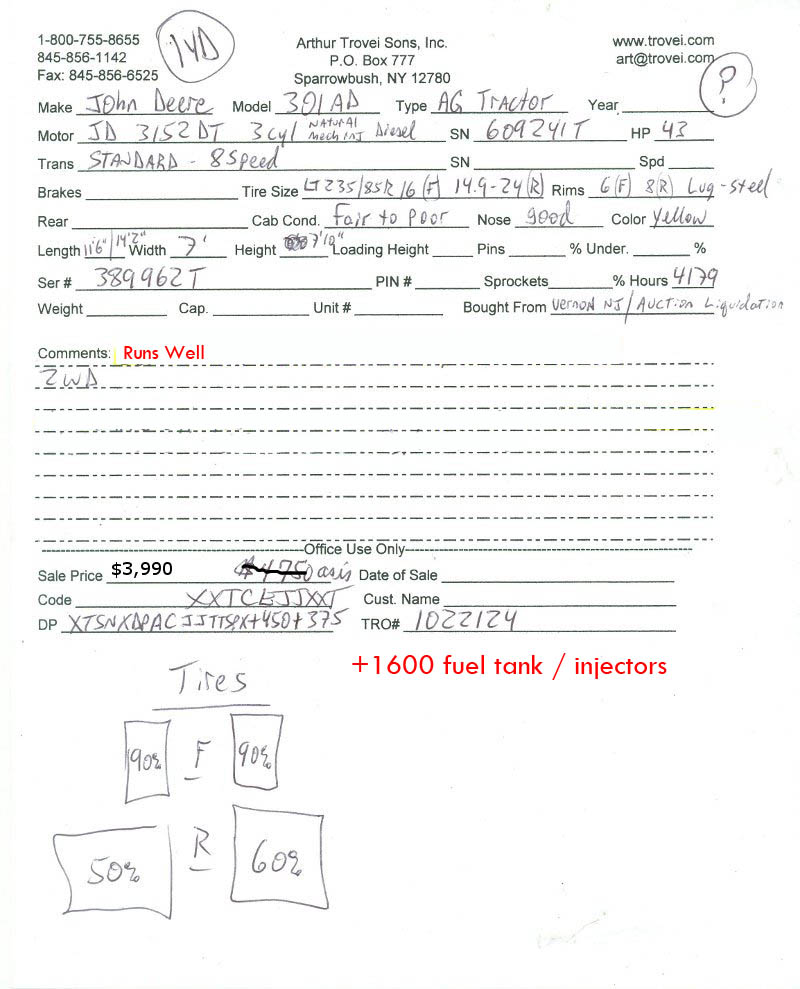 1-800-755-8655
845-856-1142
Fax: 845-856-6525
1YD
Arthur Trovei Sons, Inc.
P.O. Box 777
Sparrowbush, NY 12780
www.trovei.com
art@trovei.com
?
Make John Deere Model 301AD Type AG Tractor Year
Motor JD 3152DT 3cyl NATURAL Mech inj Diesel SN 609241T HP 43
Trans STANDARD - 8 Speed SN Spd
Brakes Tire Size LT235/85R16(F) 14.9-24(R) Rims 6(F) 8(R) Lug-steel
Rear Cab Cond. Fair to Poor Nose good Color Yellow
Length 11'6"/14'2" Width 7' Height 7'10" Loading Height Pins % Under. %
Ser # 389962T PIN # Sprockets % Hours 4179
Weight Cap. Unit # Bought From Vernon NJ/Auction Liquidation
Comments: Runs Well
2WD
Office Use Only
Sale Price $3,990 $4750 as is Date of Sale
Code XXTCEJJXXT Cust. Name
DP XTSNXDPACJJTTSPX+450+375 TRO# 1022124
+1600 fuel tank / injectors
Tires
90% F 90%
50% R 60%